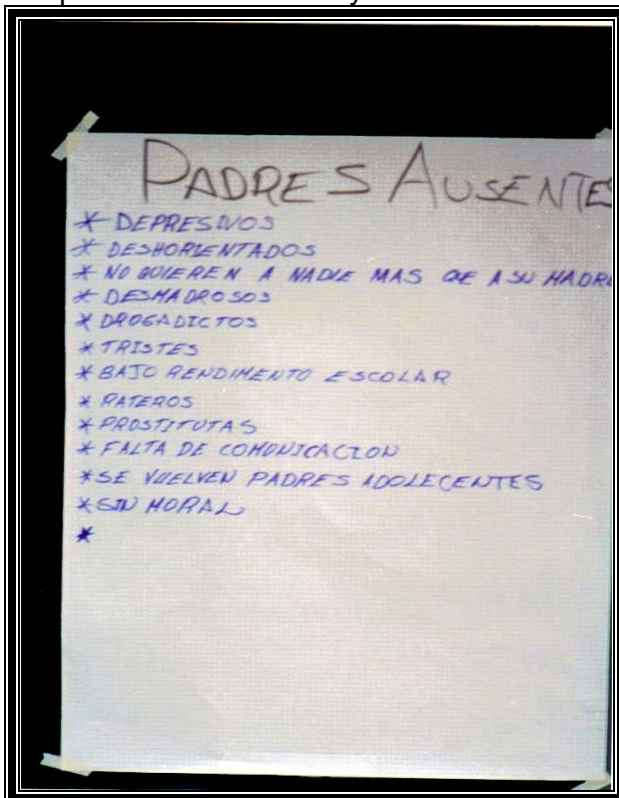 PADRES AUSENTES
* DEPRESIVOS
* DESHORIENTADOS
* NO QUIEREN A NADIE MAS QE A SU MADRE
* DESMADROSOS
* DROGADICTOS
* TRISTES
* BAJO RENDIMENTO ESCOLAR
* RATEROS
* PROSTITUTAS
* FALTA DE COMUNICACION
* SE VUELVEN PADRES ADOLECENTES
* SIN MORAL
*